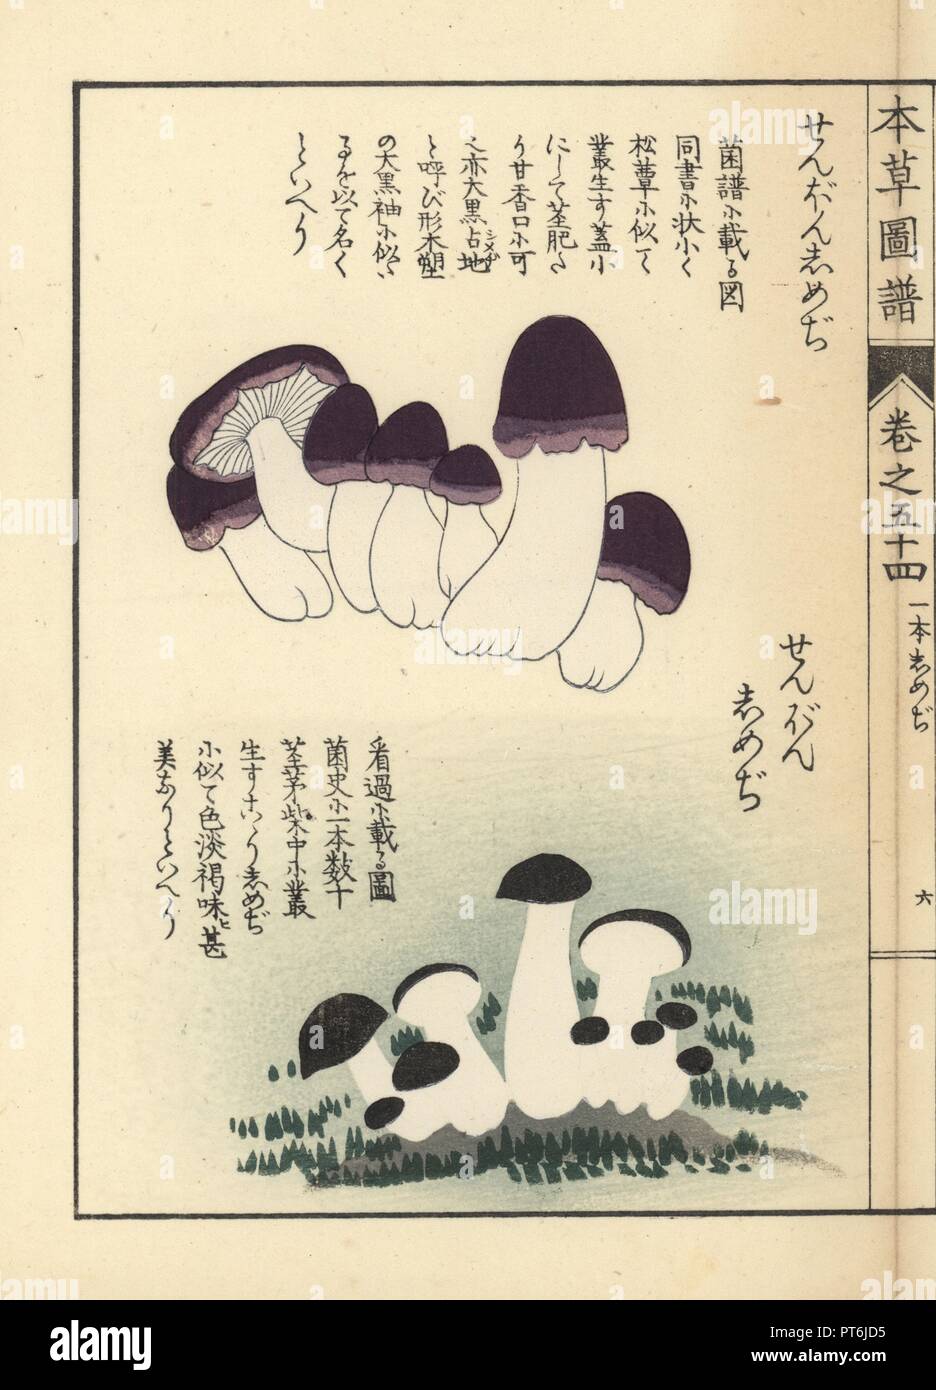 本草圖譜
巻之五十四
一本志めぢ
六
せんぼん志めぢ
菌譜小載る図
同書小状小く
松蕈小似て
叢生す蓋小
にして茎肥た
り甘香口小可
之亦大黒占地
シメヂ
と呼び形木塑
の大黒袖小似た
るを以て名く
といへり
せんぼん
志めぢ
看過小載る圖
菌史小一本数十
茎茅柴中小叢
小似て色淡褐味ヒ甚
美なりといへり
alamy
Image ID: PT6JD5
www.alamy.com